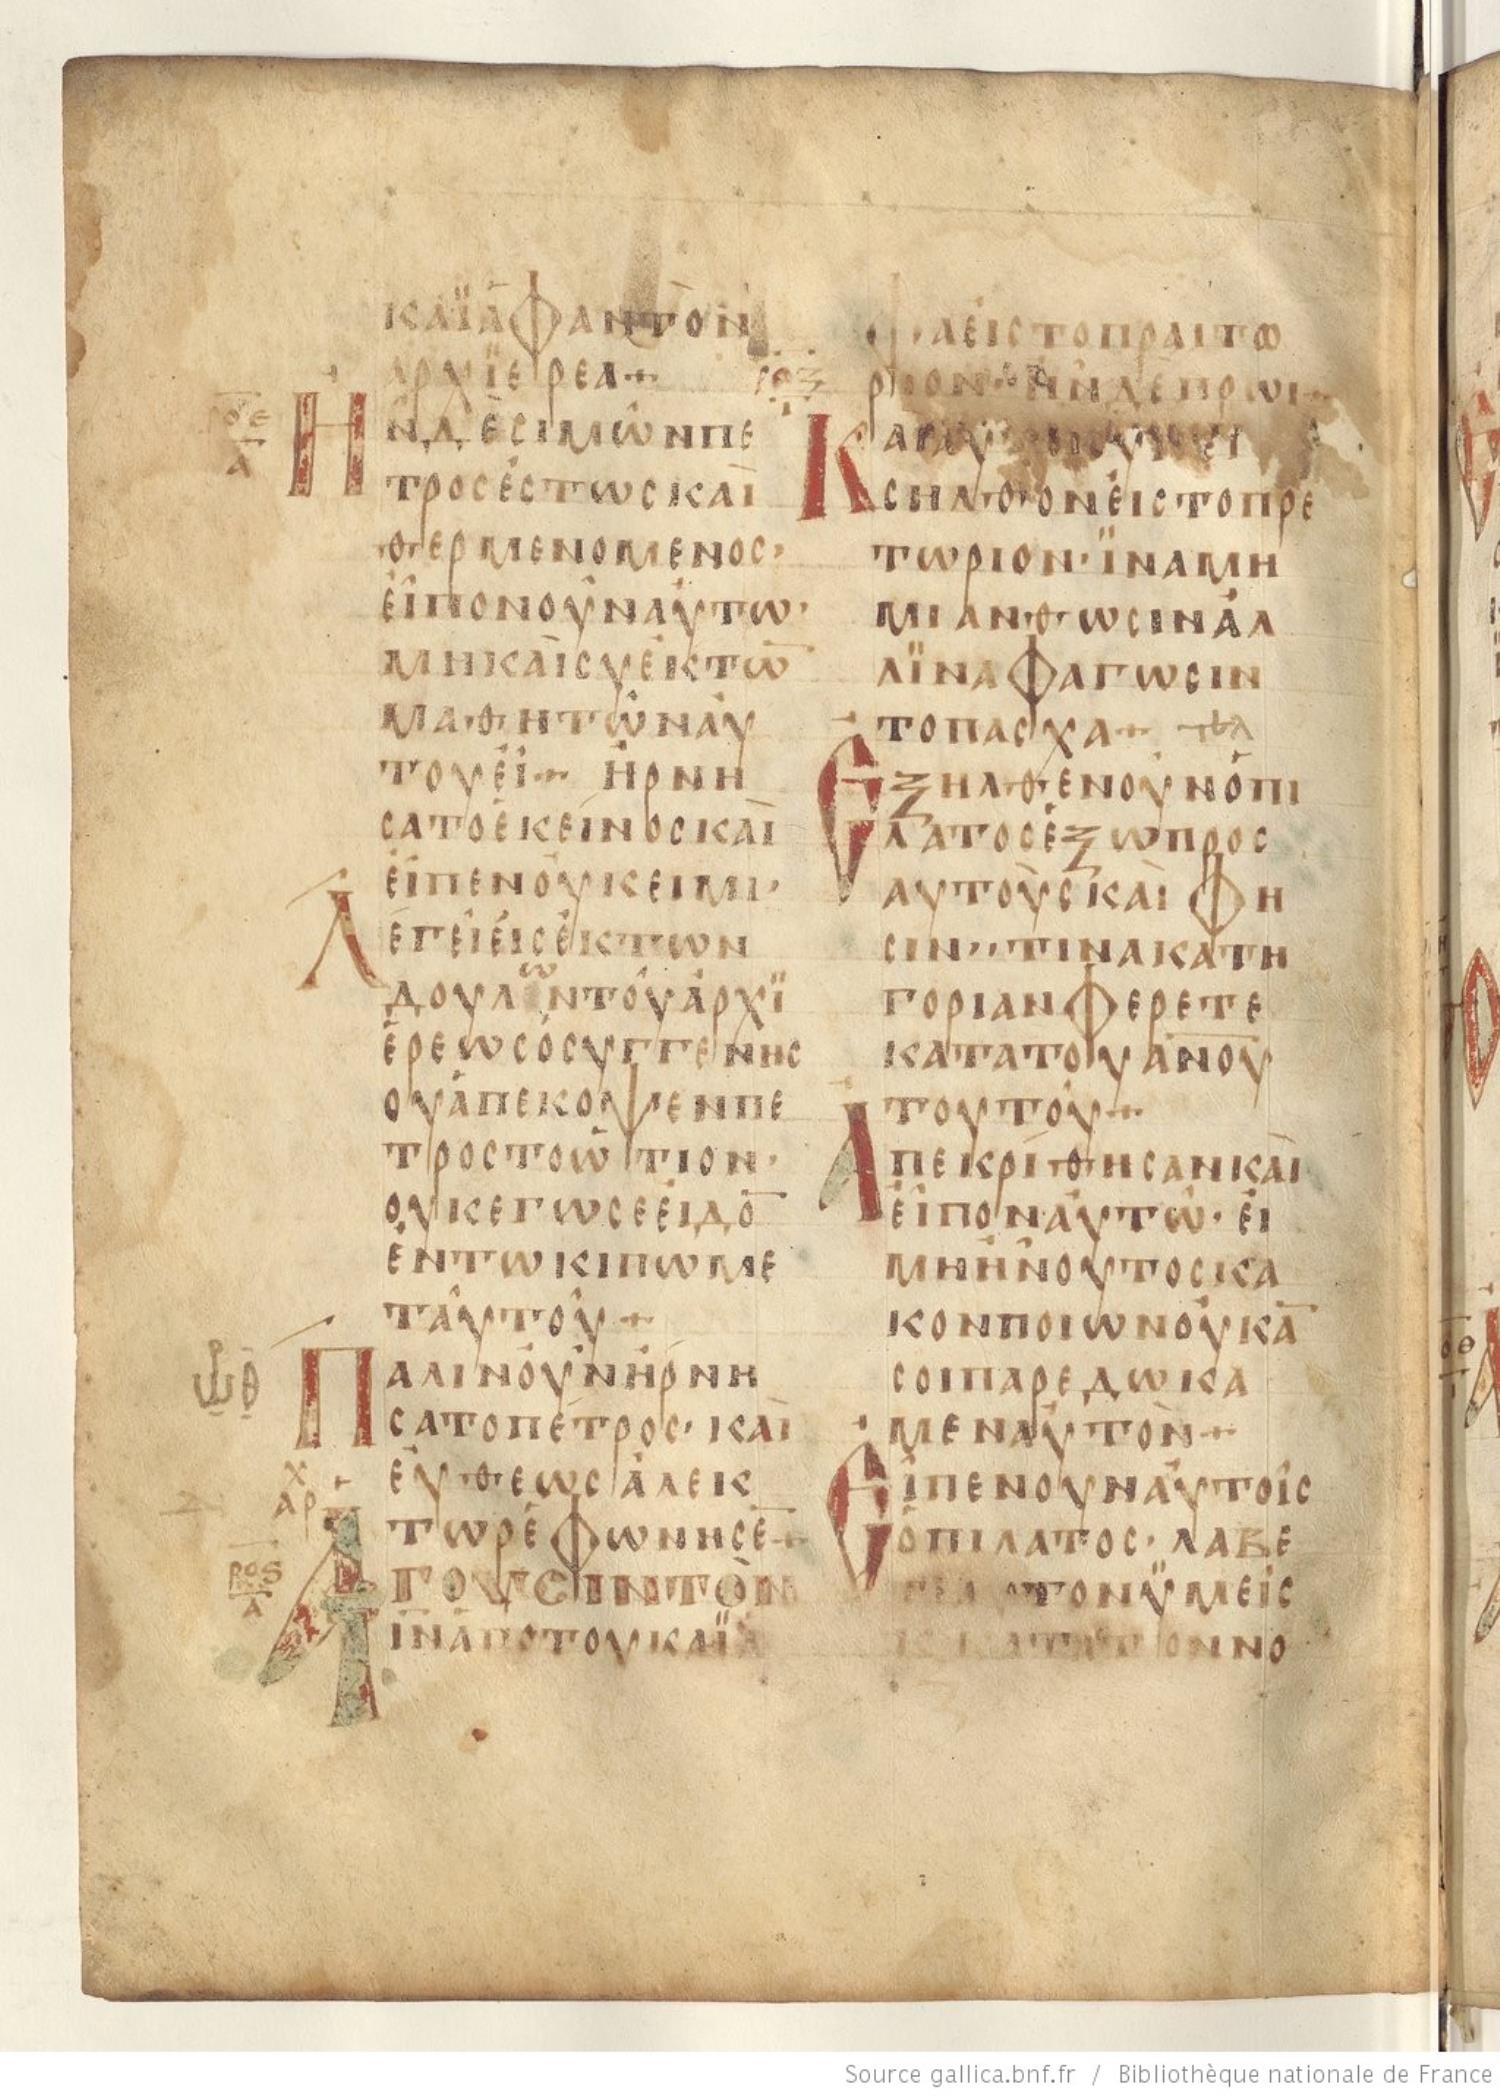 ΚΑΪΑΦΑΝΤΟΝ
ΑΡΧΪΕΡΕΑ+
ΟΕ
Α
ΗΝΔΕCΙΜΩΝΠΕ
ΤΡΟCΕCΤΩCΚΑΙ
ΘΕΡΜΕΝΟΜΕΝΟC·
ΕΙΠΟΝΟΥΝΑΥΤΩ·
ΜΗΚΑΙCΥΕΚΤΩ̅
ΜΑΘΗΤΩΝΑΥ
ΤΟΥΕΙ+ ΗΡΝΗ
CΑΤΟΕΚΕΙΝΟCΚΑΙ
ΕΙΠΕΝΟΥΚΕΙΜΙ·
ΛΕΓΕΙΕΙCΕΚΤΩΝ
ΔΟΥΛΩΝΤΟΥΑΡΧΪ
ΕΡΕΩCΟCΥΓΓΕΝΗC
ΟΥΑΠΕΚΟΨΕΝΠΕ
ΤΡΟCΤΟΩΤΙΟΝ·
ΟΥΚΕΓΩCΕΕΙΔΟ̅
ΕΝΤΩΚΙΠΩΜΕ
ΤΑΥΤΟΥ+
ΠΑΛΙΝΟΥΝΗΡΝΗ
CΑΤΟΠΕΤΡΟC·ΚΑΙ
ΕΥΘΕΩCΑΛΕΚ
ΑΡΧ
ΤΩΡΕΦΩΝΗCΕ̅+
ΡΟϚ
Α
ΑΓΟΥCΙΝΤΟΝ
ΙΝΑΠΟΤΟΥΚΑΪΑ
ΦΑΕΙCΤΟΠΡΑΙΤΩ
ΡΙΟΝ·ΗΝΔΕΠΡΩΙ·
ΡΟΖ
CΗΛΘΟΝΕΙCΤΟΠΡΕ
ΤΩΡΙΟΝ·ΪΝΑΜΗ
ΜΙΑΝΘΩCΙΝΑΛ
ΛΪΝΑΦΑΓΩCΙΝ
ΤΟΠΑCΧΑ+
ΕΞΗΛΘΕΝΟΥΝΟΠΙ
ΛΑΤΟCΕΞΩΠΡΟC
ΑΥΤΟΥCΚΑΙΦΗ
CΙΝ··ΤΙΝΑΚΑΤΗ
ΓΟΡΙΑΝΦΕΡΕΤΕ
ΚΑΤΑΤΟΥΑ̅Ν̅Ο̅Υ̅
ΤΟΥΤΟΥ+
ΑΠΕΚΡΙΘΗCΑΝΚΑΙ
ΕΙΠΟΝΑΥΤΩ·ΕΙ
ΜΗΗΝΟΥΤΟCΚΑ
ΚΟΝΠΟΙΩΝΟΥΚΑ̅
CΟΙΠΑΡΕΔΩΚΑ
ΜΕΝΑΥΤΟΝ+
ΕΙΠΕΝΟΥΝΑΥΤΟΙC
ΟΠΙΛΑΤΟC·ΛΑΒΕ
ΤΟΝΫΜΕΙC
ΚΑΤΑΤΟΝΝΟ
Source gallica.bnf.fr / Bibliothèque nationale de France